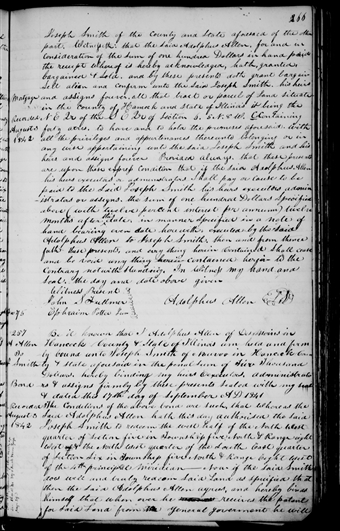 266
Joseph Smith of the County and State aforesaid of the other
part. Witnesseth that the said Adolphus Allen, for and in
Consideration of the sum of one hundred Dollars in hand paid
the receipt whereof is hereby acknowledged, hath granted
bargained & Sold, and by these presents doth grant bargain
sell alien and Confirm unto the said Joseph Smith, his heirs
Mortgage and assigns forever that tract or parcel of Land situate
in the County of Hancock and State of Illinois it being the
Recorded N. E. 1/4 of the 1/4 of Section 5. 5. N. 8. W. Containing
August 3 forty acres, to have and to hold the premises aforesaid with
1842 all the privileges and appurtenances thereunto belonging or in
any wise appertaining unto the said Joseph Smith and his
heirs and assigns forever Provided always, that these presents
are upon the express Condition that if the said Adolphus Allen
his heirs executors or administrators, shall pay or cause to be
paid to the said Joseph Smith his heirs executors admin
istrators or assigns, the sum of one hundred Dollars specified
above (with twelve percent interest per annum) twelve
months after date, in manner specified in a note of
hand bearing even date herewith executed by the said
Adolphus Allen to Joseph Smith, then and from thence
forth these presents, and any thing herein Contained shall cease
and be void any thing herein contained herein to the
Contrary notwithstanding. In Witness my hand and
seal, the day and date above given
Witness Present
John S. Fullmer
Adolphus Allen
Ephraim Potter
257 Be it known that I Adolphus Allen of
A Allen Hancock County & State of Illinois am held and firm
ly bound unto Joseph Smith of Nauvoo in Hancock Coun
J Smith ty & State aforesaid in the penal sum of Five Thousand
Dollars hereby binding my heirs Executors, administrators
Bond & assigns firmly by these presents sealed with my seal
& dated this 17th day of September A D 1841
Recorded The Condition of the above bond are such, that whereas the
August 3 Said Adolphus Allen hath this day authorised the Said
1842 Joseph Smith to the West Half of the North West
quarter of Section five in Township five North & Range eight
West of & the North East quarter of the North East quarter
of Section Six in Township five North & Range Eight West
of the 4th principal Meridian Now if the Said Smith
does well and truly Said Land as specified that
then the Said Adolphus Allen agrees, and hereby binds
himself that when ever he receives the patent
for Said Land from the General government he will